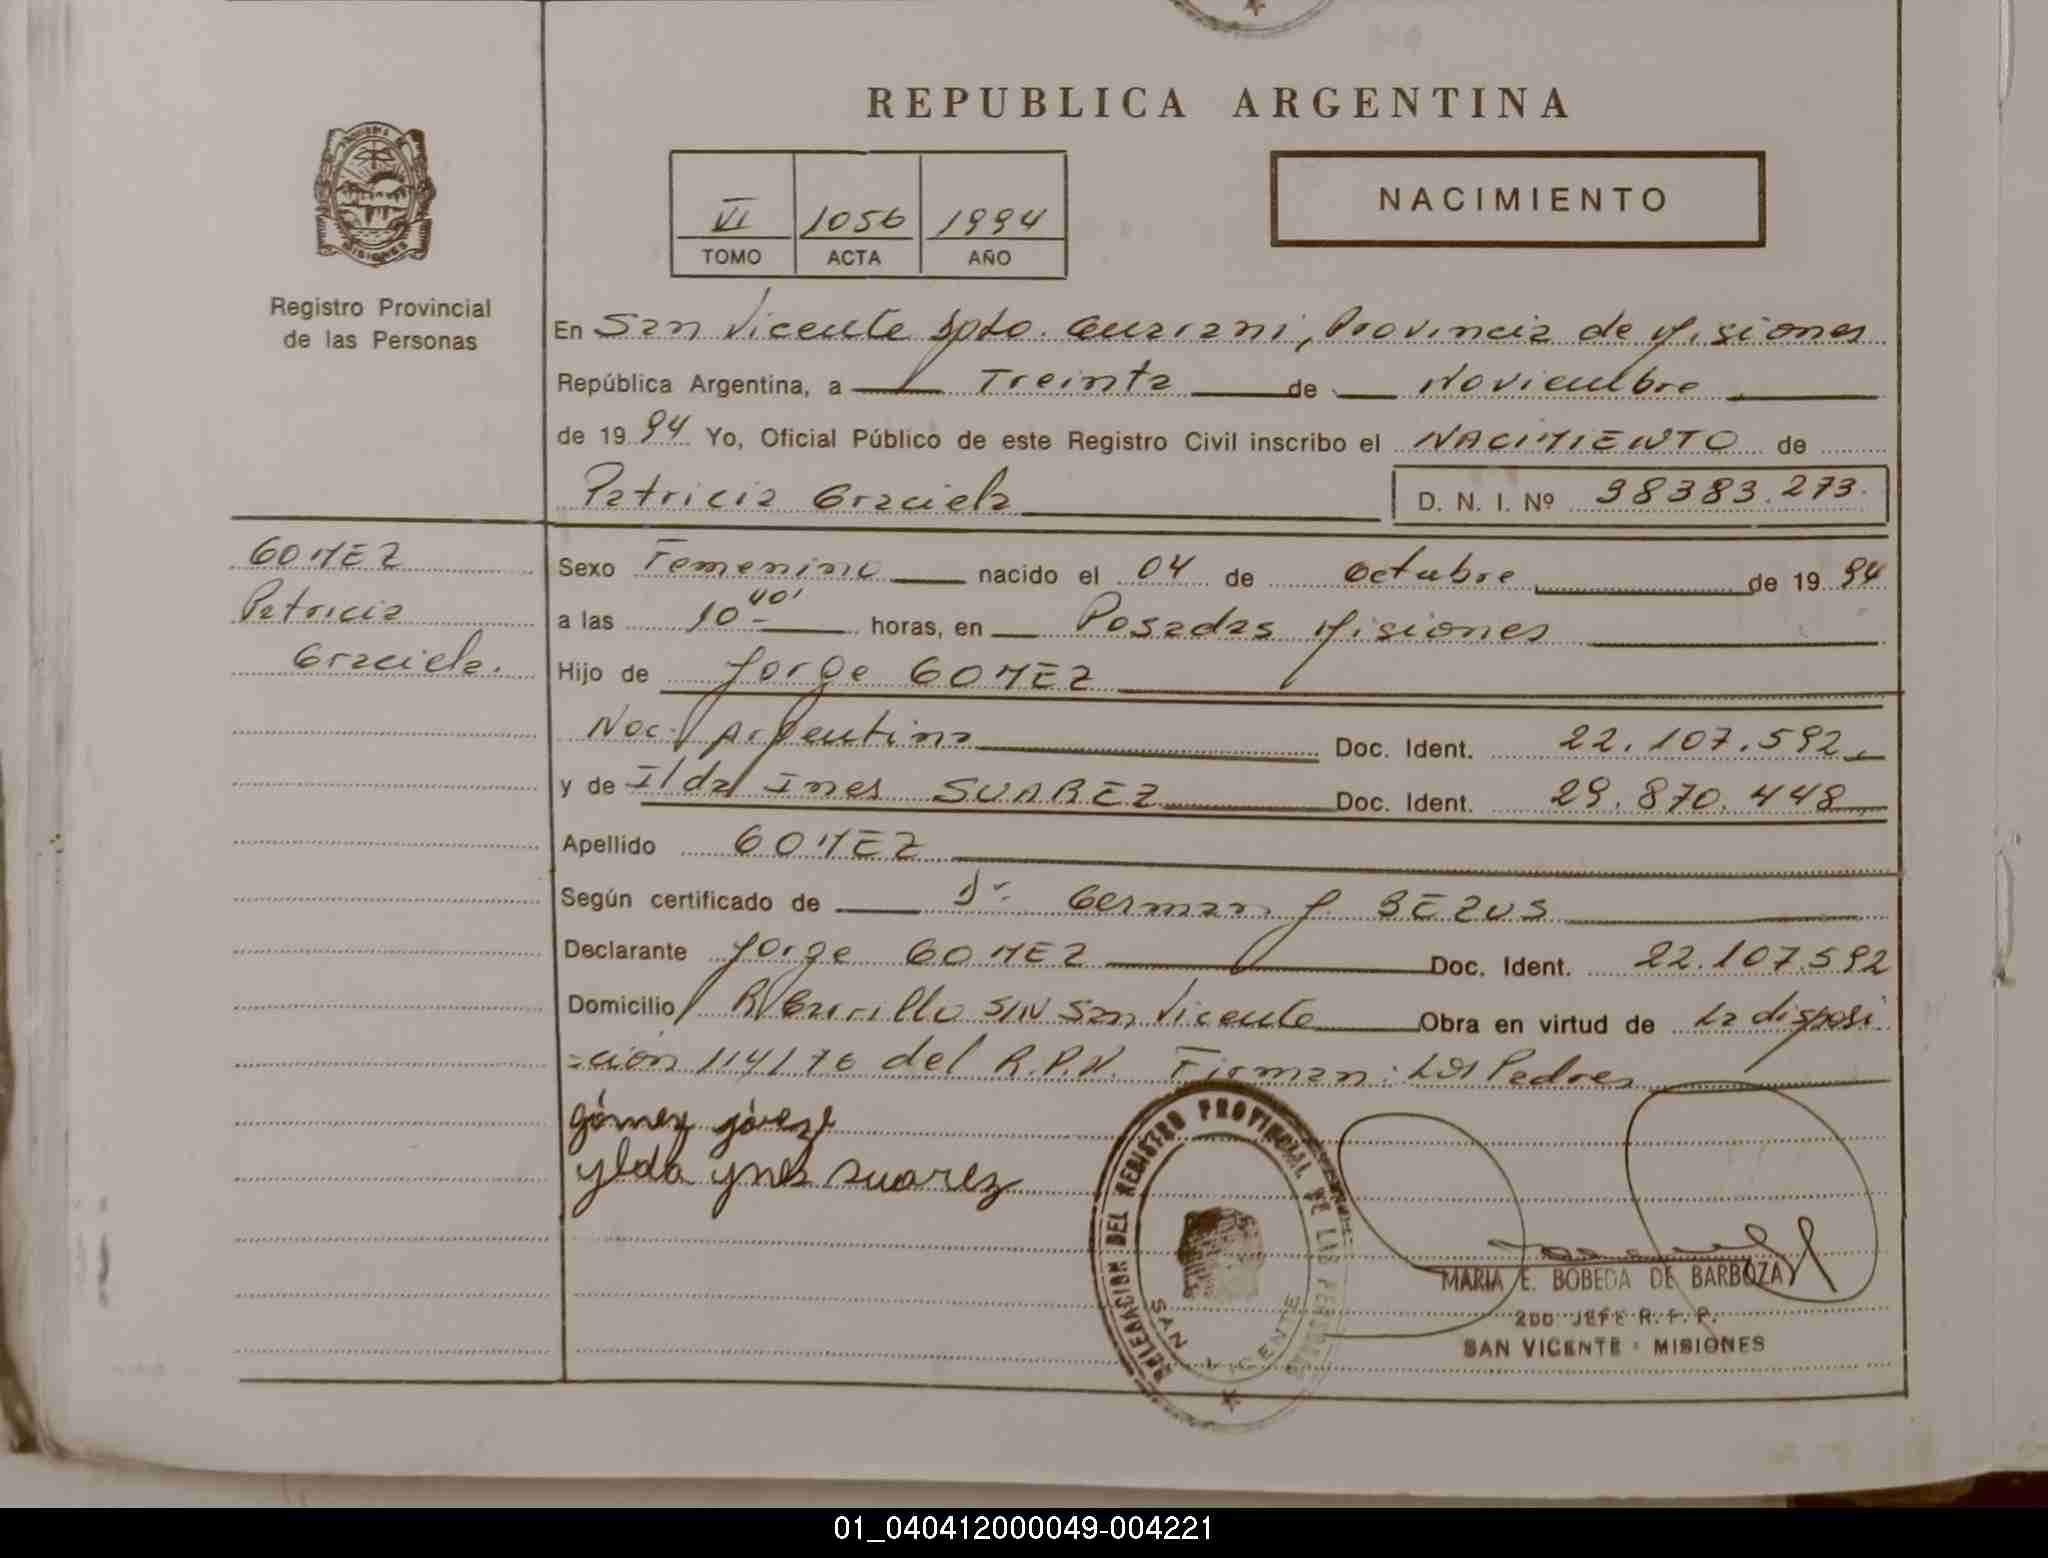 REPUBLICA ARGENTINA
VI 1056 1994
TOMO ACTA AÑO
NACIMIENTO
MISIONES
Registro Provincial
de las Personas
En San Vicente Dpto. Guarani, Provincia de Misiones
República Argentina, a Treinta de Noviembre
de 1994 Yo, Oficial Público de este Registro Civil inscribo el NACIMIENTO de
Patricia Graciela D. N. I. Nº 38383.273.
GOMEZ
Patricia
Graciela.
Sexo Femenino nacido el 04 de Octubre de 1994
a las 10 40' horas, en Posadas Misiones
Hijo de Jorge GOMEZ
Nac. Argentina Doc. Ident. 22.107.592.
y de Ilda Ines SUAREZ Doc. Ident. 29.870.448
Apellido GOMEZ
Según certificado de Dr. German J. BEZUS
Declarante Jorge GOMEZ Doc. Ident. 22.107.592
Domicilio B Carrillo S/N San Vicente Obra en virtud de la disposi
=cion 114/76 del R.P.N. Firman: Los Padres
gómez górege
ylda ynes suarez
DELEGACION DEL REGISTRO PROVINCIAL DE LAS PERSONAS
SAN VICENTE
MARIA E. BOBEDA DE BARBOZA
2DO JEFE R. P. P.
SAN VICENTE - MISIONES
01_040412000049-004221